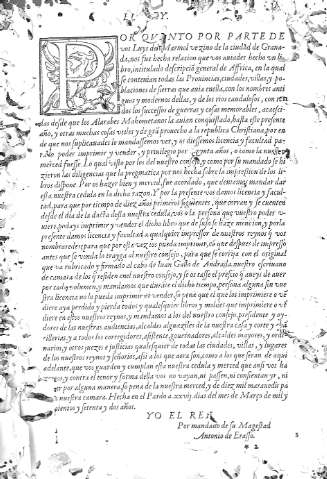 EL REY.
POR QUANTO POR PARTE DE
vos Luys del Marmol vezino de la ciudad de Grana-
da, nos fue hecha relacion que vos auiades hecho vn li-
bro, intitulado descripciõ general de Affrica, en la qual
se contenian todas las Prouincias, ciudades, villas, y po-
blaciones de sierras que auia en ella, con los nombres anti-
guos y modernos dellas, y de los rios caudalosos, con
los successos de guerras y cosas memorables, acaesci-
das desde que los Alarabes Mahometanos la auian conquistado, hasta este presente
año, y otras muchas cosas vtiles y de grã prouecho a la republica Christiana, por en
de que nos suplicauades os mandassemos ver, y os diessemos licencia y facultad pa-
ra lo poder imprimir y vender, y priuilegio por años, o como la nuestra
merced fuesse. Lo qual visto por los del nuestro consejo, y como por su mandado se hi-
zieron las diligencias que la pregmatica por nos hecha sobre la impressiõ de los li-
bros dispone. Por os hazer bien y merced, fue acordado, que deuiamos mandar dar
esta nuestra cedula en la dicha razon. Y por la presente vos damos licencia y facul-
tad, para que por tiempo de diez años primeros siguientes, que corran y se cuenten
desde el dia de la data desta nuestra cedula, vos o la persona que vuestro poder vu-
iere, podays imprimir y vender el dicho libro que de suso se haze mencion, y por la
presente damos licencia y facultad a qualquier impressor de nuestros reynos q̃ vos
nombraredes para que por esta vez lo pueda imprimir, cõ que despues de impresso
antes que se venda lo trayga al nuestro consejo, para que se corrija con el original
que va rubricado y firmado al cabo de Iuan Gallo de Andrada nuestro escriuano
de camara de los q̃ residen en el nuestro consejo, y se os tasse el precio q̃ aueys de auer
por cada volumen, y mandamos que durante el dicho tiempo, persona alguna sin vue-
stra licencia no la pueda imprimir ni vender, so pena que el que lo imprimiere o vẽ
diere aya perdido y pierda todos y qualesquier libros y moldes que imprimiere o vẽ
diere en estos nuestros reynos, y mandamos a los del nuestro consejo, presidente y oy-
dores de las nuestras audiencias, alcaldes alguaziles de la nuestra casa y corte y chã
cillerias, y a todos los corregidores, assistente, gouernadores, alcaldes mayores, y ordi-
narios, y otros juezes e justicias qualesquier de todas las ciudades, villas, y lugares
de los nuestros reynos y señorios, assi a los que aora son, como a los que seran de aqui
adelante, que vos guarden y cumplan esta nuestra cedula y merced que ansi vos ha
zemos, y contra el tenor y forma della vos no vayan, ni passen, ni consientan yr, ni
por alguna manera, so pena de la nuestra merced, y de diez mil marauedis pa
ra nuestra camara. Hecha en el Pardo a xxvij. dias del mes de Março de mil y
quinientos y setenta y dos años.
YO EL REY.
Por mandado de su Magestad
Antonio de Erasso.